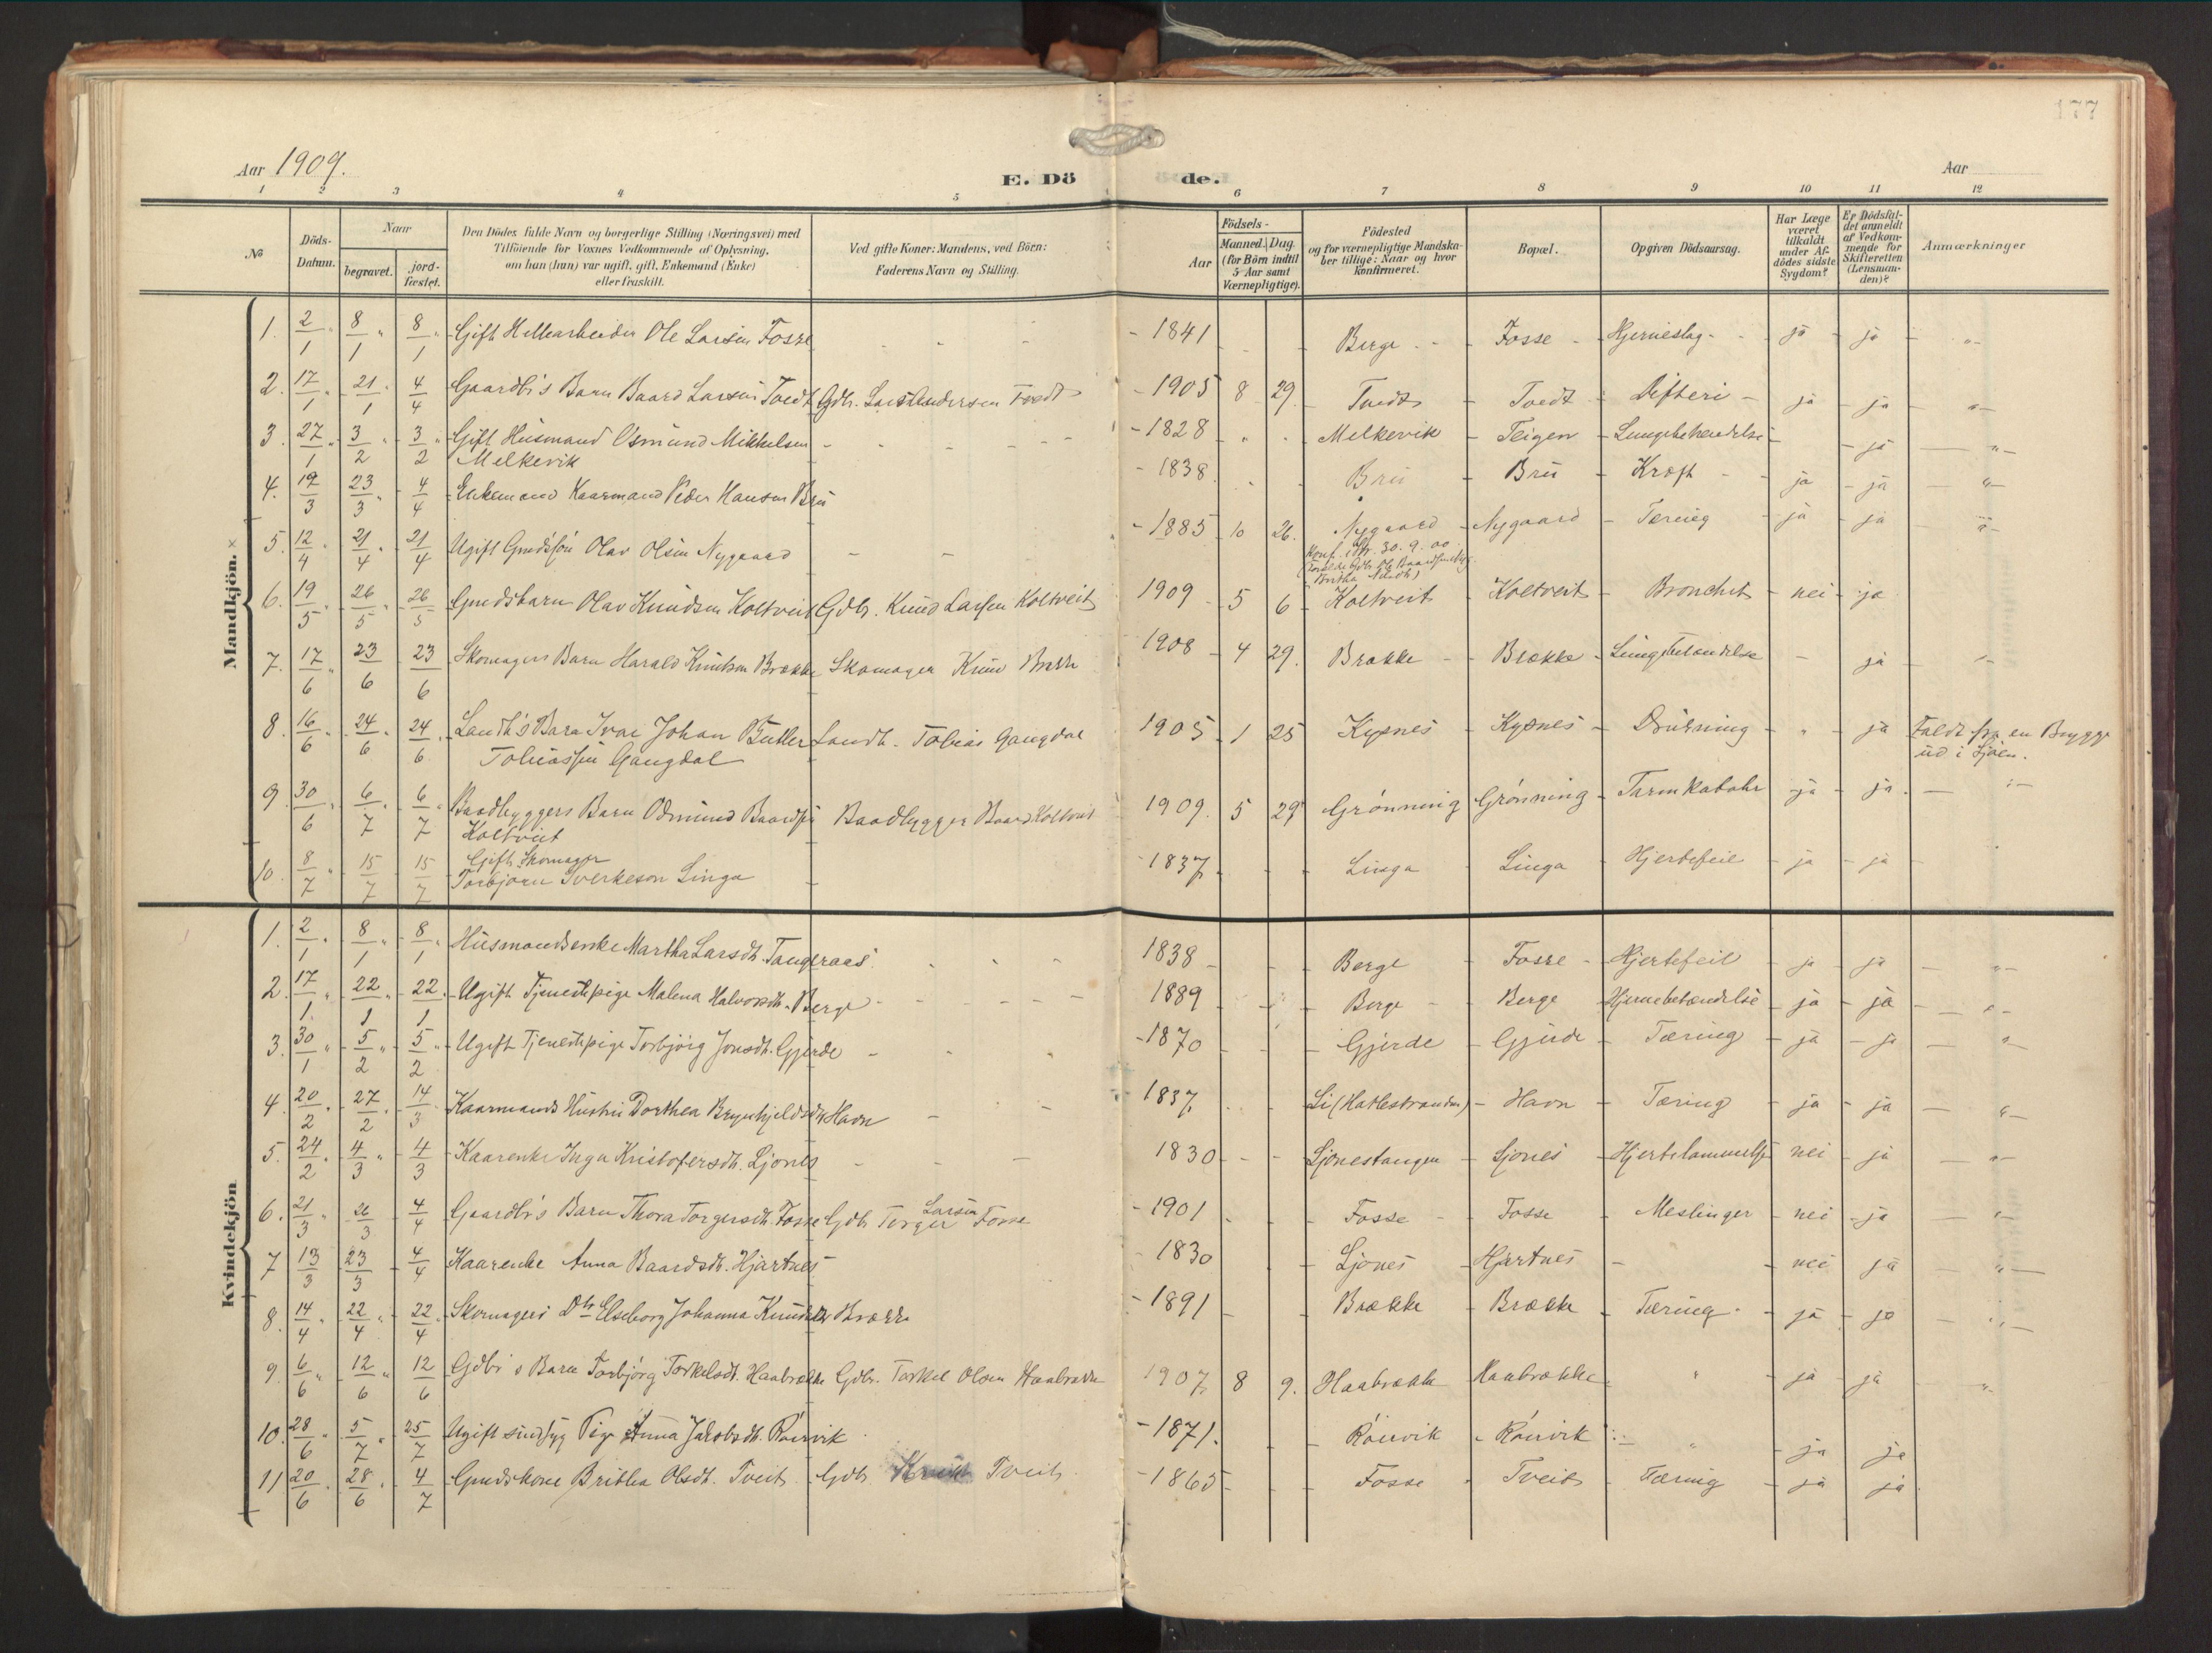 177
Aar 1909.
E. Döde.
Aar
1 2 3 4 5 6 7 8 9 10 11 12
No
Döds-Datum.
Naar
begravet.
jord-fæstet.
Den Dödes fulde Navn og borgerlige Stilling (Næringsvei) med
Tilföiende for Voxnes Vedkommende af Oplysning,
om han (hun) var ugift, gift, Enkemand (Enke)
eller fraskilt.
Ved gifte Koner: Mandens, ved Börn:
Faderens Navn og Stilling.
Födsels-
Aar
Maaned. Dag
(for Börn indtil
5 Aar samt
Værnepligtige).
Födested
og for værnepligtige Mandska-
ber tillige: Naar og hvor
konfirmeret.
Bopæl.
Opgiven Dödsaarsag.
Har Læge
været
tilkaldt
under Af-
dödes sidste
Sygdom?
Er Dödsfal-
det anmeldt
af Vedkom-
mende for
Skifteretten
(Lensman-
den)?
Anmærkninger
Mandkjön. ×
1. 2/1 " 8/1 " 8/1 " Gift Hellearbeider Ole Larsen Fosse - - - - 1841 - - - Berge - - Fosse - Hjerneslag - - ja - ja - "-
2. 17/1 " 21/1 " 4/4 Gaardbr's Barn Baard Larsen Tvedt Gdbr. Lars Andersen Tvedt - 1905 8 29. Tvedt - Tvedt - Difteri - ja - ja - "-
3. 27/1 " 3/2 " 3/2 " Gift Husmand Osmund Mikkelsen - - - - - - 1828 " " Melkevik - Teigen - Lungebetændelse - - ja - "-
Melkevik
4. 19/3 23/3 " 4/4 - Enkemand Kaarmand Peder Hansen Bru - 1838. - - Bru - Bru - Kræft - - ja - ja - "-
5. 12/4 " 21/4 " 21/4 Ugift Gmdssön Olav Olsen Nygaard - - - 1885 10 26. Nygaard - Nygaard - Tæring - ja - ja - "-
Konf. 30. 9. 00.
6. 19/5 " 26/5 " 26/5 Gmdsbarn Olav Knudsen Koltveit Gdbr. Knud Larsen Koltveit 1909 - 5 6 - Koltveit - Koltveit - Bronchit - nei - ja
7. 17/6 " 23/6 - 23/6 Skomagers Barn Harald Knutsen Brække Skomager Knud 1908 - 4 29. Brække - Brække - Lungebetændelse - ja - "-
8. 16/6 " 24/6 " 24/6 Landh's Barn Ivar Johan Butler Landh. Tobias Gangdal 1905 - 1 25 Kysnes - Kysnes - Drukning - " - ja Faldt fra en Brygge
Tobiassen Gangdal ud i Sjöen.
9. 30/6 " 6/7 " 6/7 " Baadbyggers Barn Odmund Baardsen Baadbygger Baard Koltveit 1909. 5 29 Grönning Grönning - Tarmkatahr - ja - ja. - "-
Koltveit
10. 8/7 - 15/7 - 15/7 Gift Skomager - 1837. - - - Linga - Linga - Hjertefeil - ja - ja -
Torbjörn Sverkeson Linga
Kvindekjön
1. 2/1 " 8/1 " 8/1 " Husmandsenke Martha Larsdt. Tangeraas. - - - 1838 - - - Berge - Fosse - Hjertefeil - ja - ja - "-
2. 17/1 " 22/1 - 22/1 Ugift Tjenestepige Malena Halvorsdt. Berge - - - - - 1889 - - - Berge - - Berge - Hjernebetændelse - ja - ja - "-
3. 30/1 " 5/2 " 5/2 " Ugift Tjenestepige Torbjörg Jonsdt. Gjerde - - - - 1870 - - - Gjerde - Gjerde - Tæring - ja - ja - "-
4. 20/2 " 27/2 - 14/3 - Kaarmands Hustru Dorthea Brynhjeldsdtr Havn - - - 1837. - Li (Hatlestranden) - Havn - Tæring - ja - ja - "-
5. 24/2 " 4/3 " 4/3 - Kaarenke Inga Kristofersdt. Ljones - - - 1830 - - - Ljonestangen - Ljones - Hjertelammelse nei - ja - "-
6. 21/3 " 26/3 4/4 Gaardbr's Barn Thora Torgersdt. Fosse Gdbr Torger Larsen Fosse - 1901 - - - Fosse - - Fosse - Meslinger - nei - ja - "-
7 13/3 23/3 - 4/4 Kaarenke Anna Baardsdt. Hjartnes - - 1830 - Ljones - Hjartnes - - nei ja - "-
8. 14/4 " 22/4 " - 22/4 " Skomagers Dtr Elseborg Johanna Knudsdtr Brække - 1891 - - Brække - Brække - Tæring - - ja - ja - "-
9. 6/6 " 12/6 " 12/6 Gdbr's Barn Torbjörg Torkelsdt. Haabrække Gdbr. Torkel Olsen Haabrække 1907 8 9. - Haabrække Haabrække - " - ja - ja "-
10. 28/6 " 5/7 " 25/7 Ugift sindssyg Pige Anna Jakobsdt. Röirvik - 1871. - - Röirvik - Röirvik - " - ja ja
11 20/6 " 28/6 " 4/7 Gmdskone Britha Olsdt. Tveit Gdb. Tveit - 1865 - - - Fosse - Tveit - Tæring - ja ja